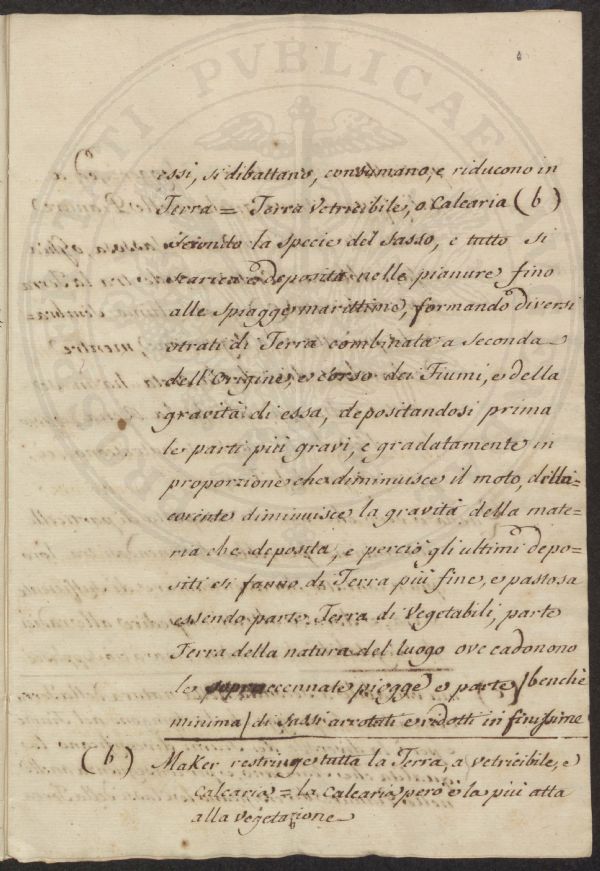 essi, si dibattano, consumano, e riducono in
Terra = Terra vetricibile, o Calcaria (b)
secondo la specie del Sasso, e tutto si
scarica e deposita nelle pianure fino
alle spiagge marittime, formando diversi
strati di Terra combinata a seconda
dell'origine, e corso dei Fiumi, e della
gravità di essa, depositandosi prima
le parti più gravi, e gradatamente in
proporzione che diminuisce il moto, della
corente diminuisce la gravità della mate=
ria che deposita, e perciò gli ultimi depo=
siti si fanno di Terra più fine, e pastosa
essendo parte Terra di Vegetabili, parte
Terra della natura del luogo ove cadonono
le sopraccennate piogge e parte / benchè
minima / di Sassi arrotati e ridotti in finissime
(b) Maker restringe tutta la Terra, a vetricibile, e
calcaria = la calcaria però è la più atta
alla vegetazione